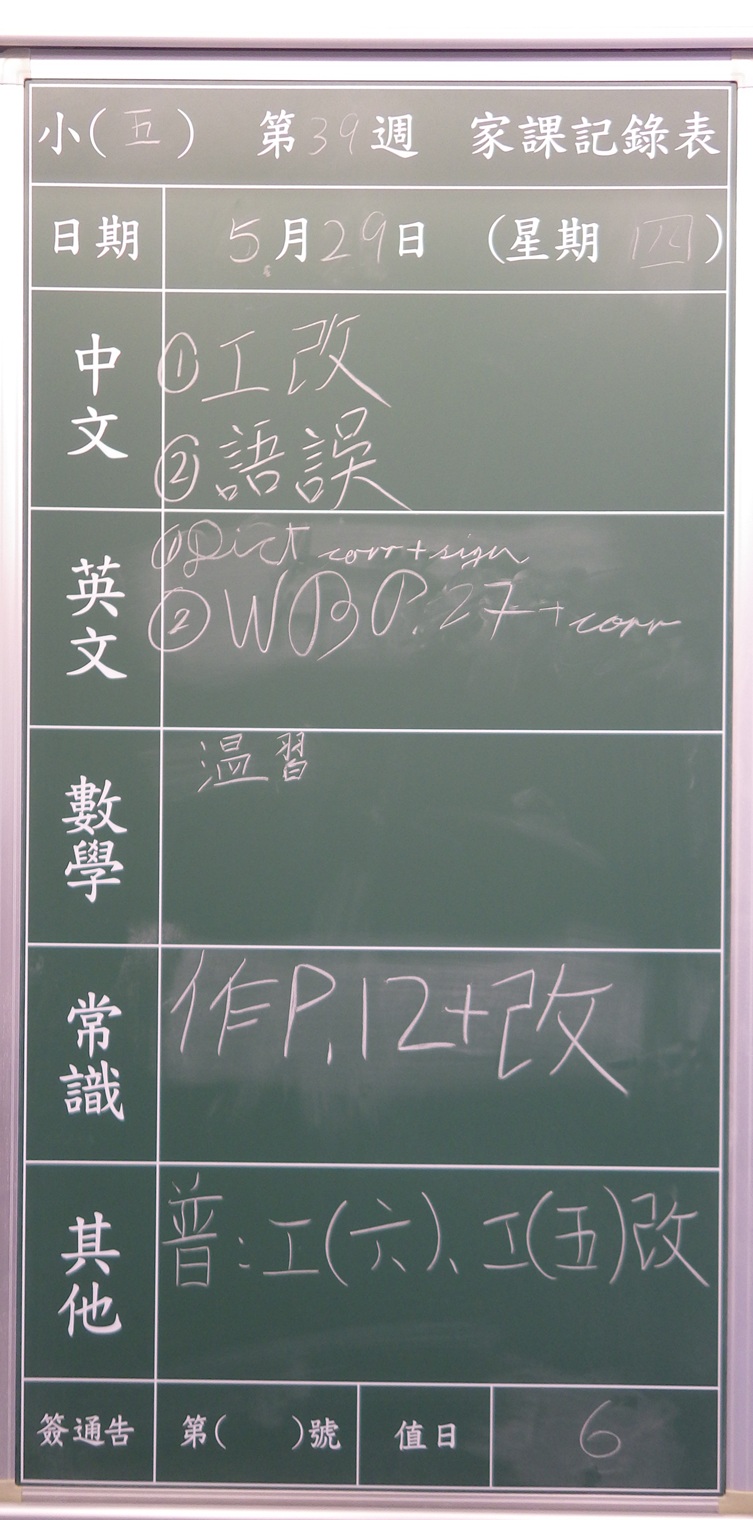 小(五) 第39週 家課記錄表
日期 5月29日 (星期四)
中文
①工改
②語誤
英文
①Dict corr+sign
②WB P.27+corr
數學
溫習
常識
作P.12+改
其他
普:工(六)、工(五)改
簽通告 第( )號 值日 6